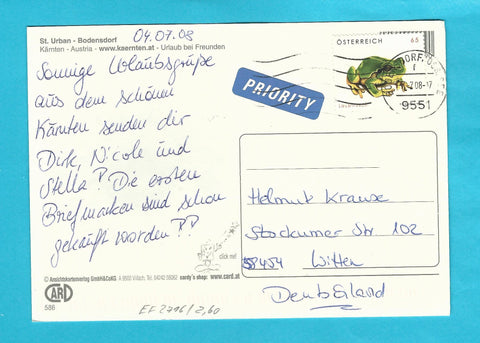 St. Urban - Bodensdorf
Kärnten - Austria - www.kaernten.at - Urlaub bei Freunden
04.07.08
Sonnige Urlaubsgrüße
aus dem schönen
Kärnten senden dir
Dirk, Nicole und
Stella! Die ersten
Briefmarken sind schon
gekauft worden!!
PRIORITY
ÖSTERREICH 65
9551
Helmut Krause
Stockumer Str 102
58454 Witten
Deutschland
click me!
© Ansichtskartenverlag GmbH&CoKG A 9500 Villach, Tel. 04242 05062 sardy's shop: www.card.at
CARD
586
EF 2796/2,60